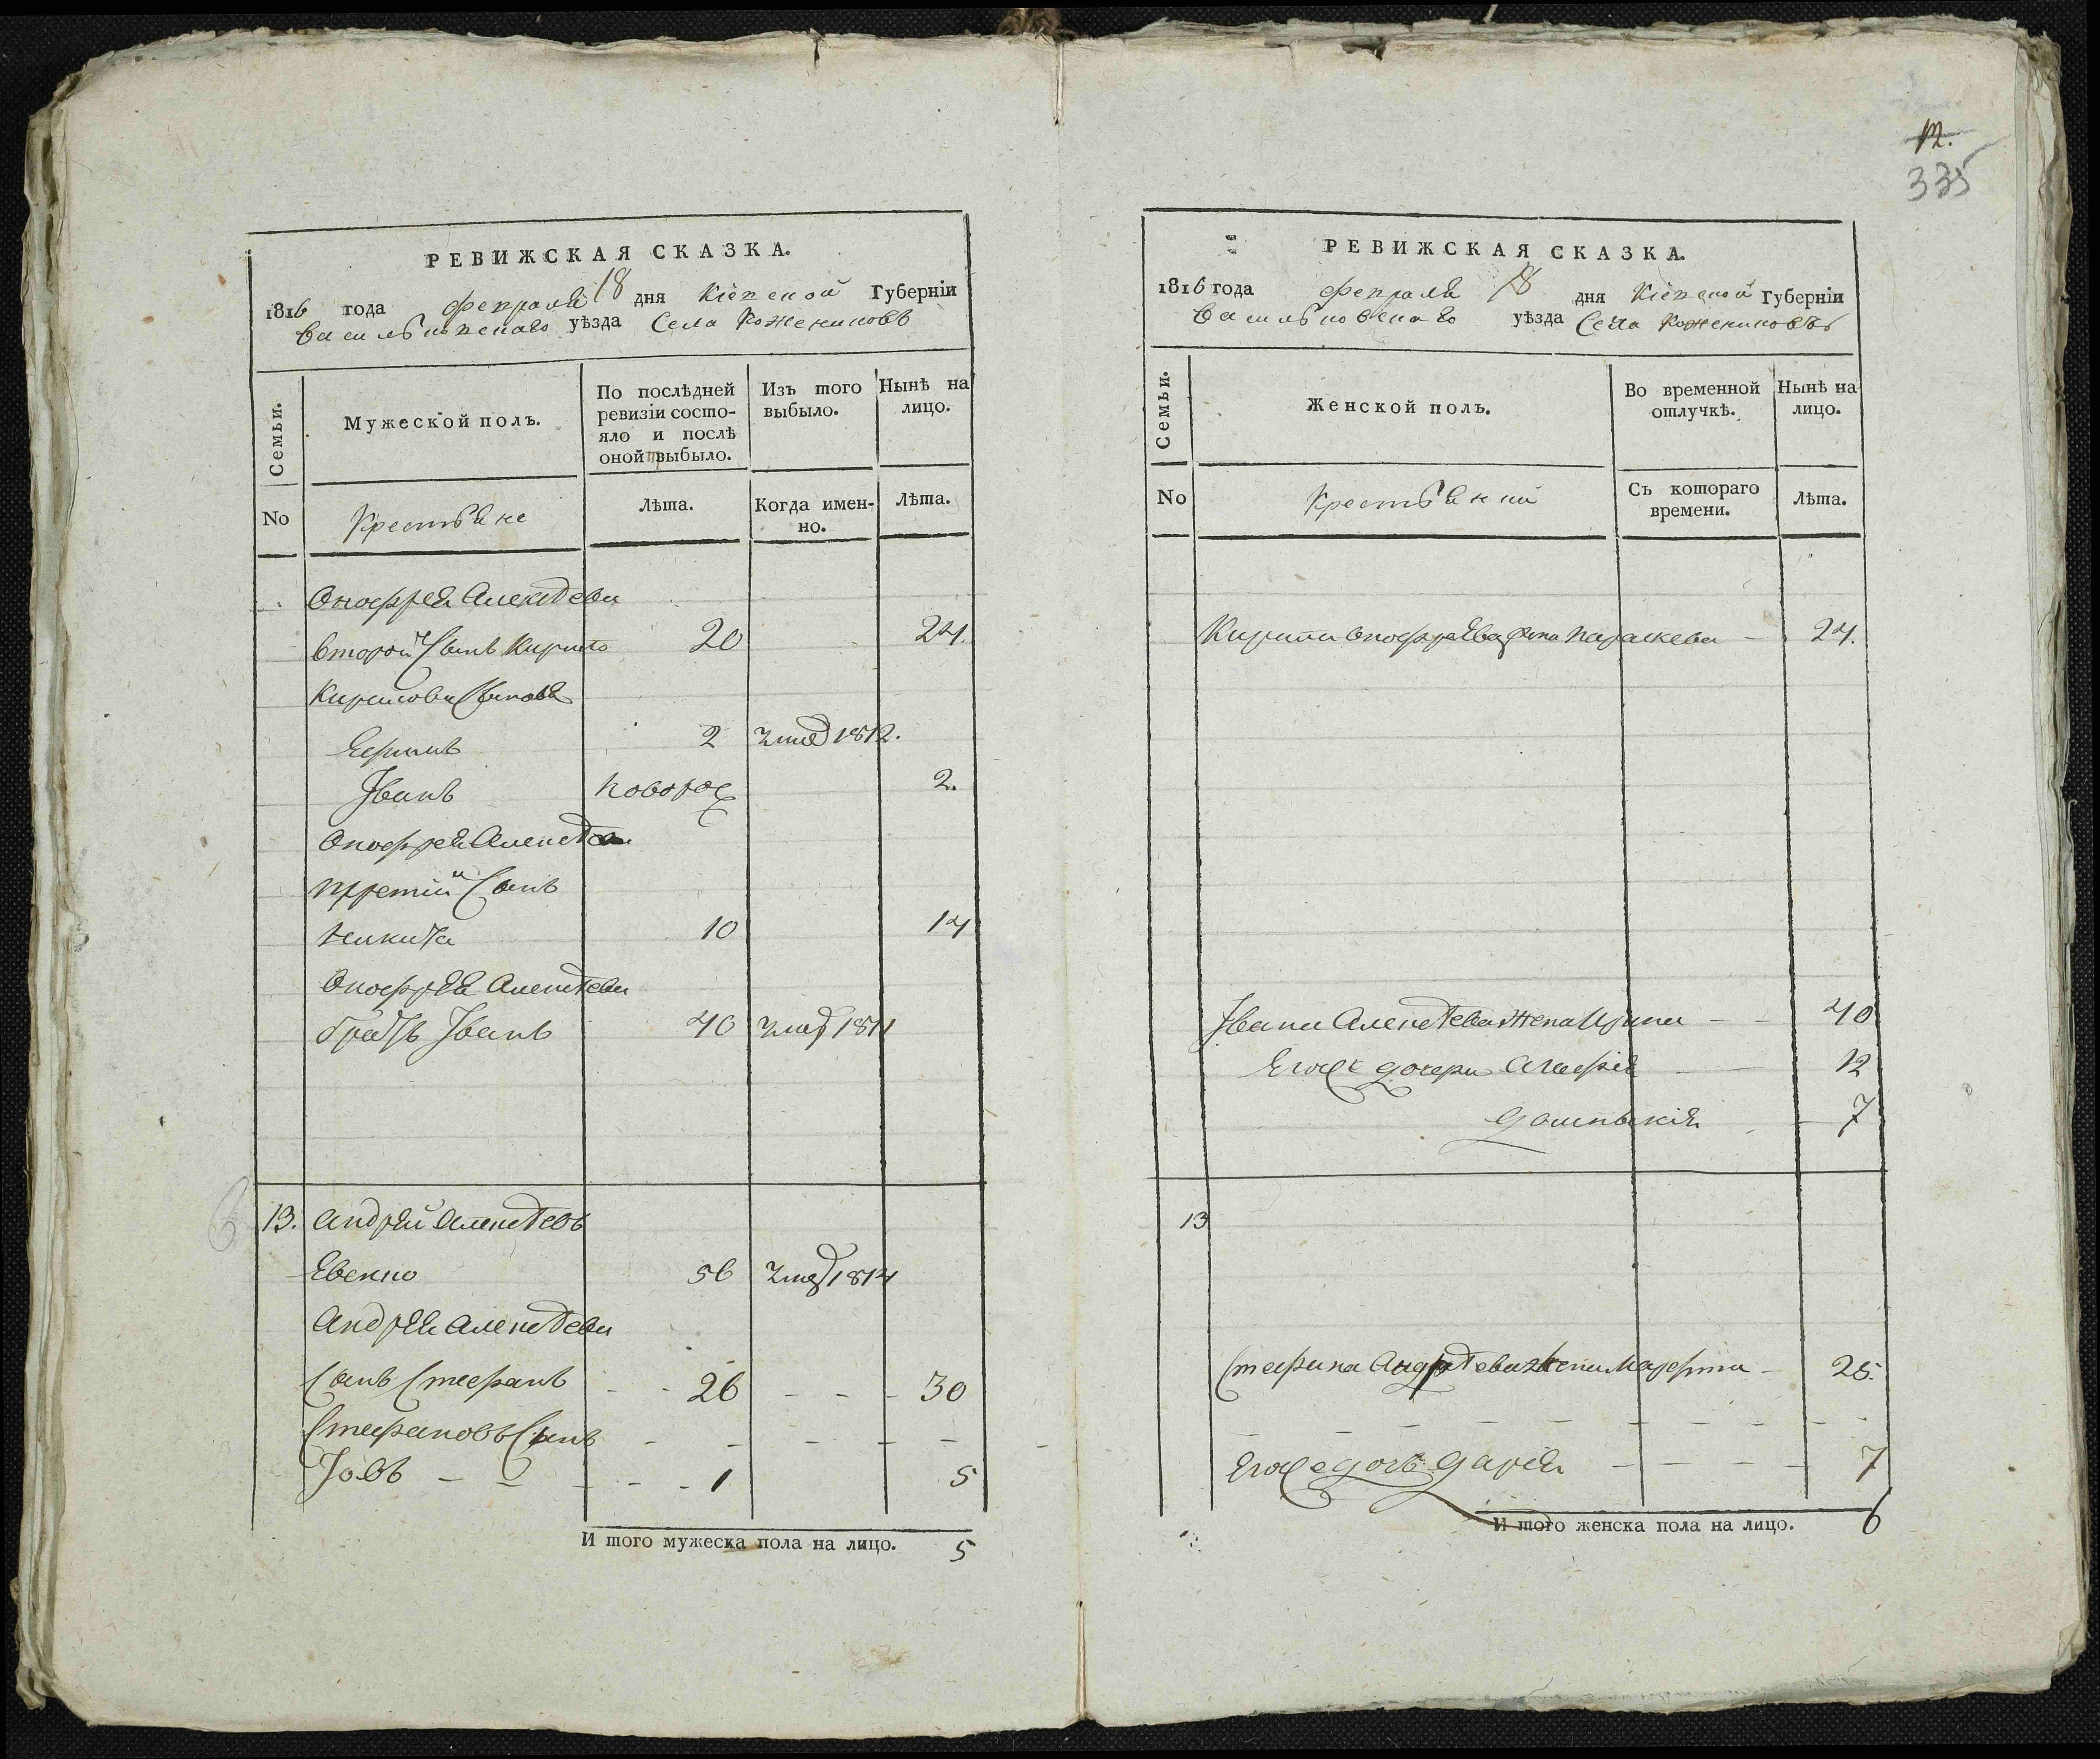 12.
335
РЕВИЖСКАЯ СКАЗКА.
1816 года февраля 18 дня Кіевской Губерніи
Васильковскаго уѣзда Села Кожениковъ
Семьи.
Мужеской полъ.
По послѣдней ревизіи состо-
яло и послѣ
оной выбыло.
Изъ того выбыло.
Нынѣ на лицо.
No
Крестьяне
Лѣта.
Когда имен-
но.
Лѣта.
Онофрея Алексѣева
второй Сынъ Кирило 20 24.
Кирилова Сыновя
Ефимъ 2 умре 1812.
Іванъ новорож 2.
Онофрея Алексѣева
третій Сынъ
Никита 10 14
Онофрея Алексѣева
братъ Іванъ 40 умер 1811
13. Андрей Алексѣевъ
Евенко 56 умер 1814
Андрея Алексѣева
Сынъ Стефанъ - - 26 - - - 30
Стефановъ Сынъ - - - - -
Іовъ - - - - - 1 5
И того мужеска пола на лицо. 5
РЕВИЖСКАЯ СКАЗКА.
1816 года февраля 18 дня Кіевской Губерніи
Васильковскаго уѣзда Села Кожениковъ
Семьи.
Женской полъ.
Во временной отлучкѣ.
Нынѣ на лицо.
No
Крестьянки
Съ котораго времени.
Лѣта.
Кирила Онофрѣева жена Параскева - 24.
Івана Алексѣева жена Ирина - - 40
Егоже дочери Агафія - - 12
7
13
Стефана Андрѣева жена Марфа - 25.
- - - - - - - -
Егоже дочь Дарія - - - - 7
И того женска пола на лицо. 6